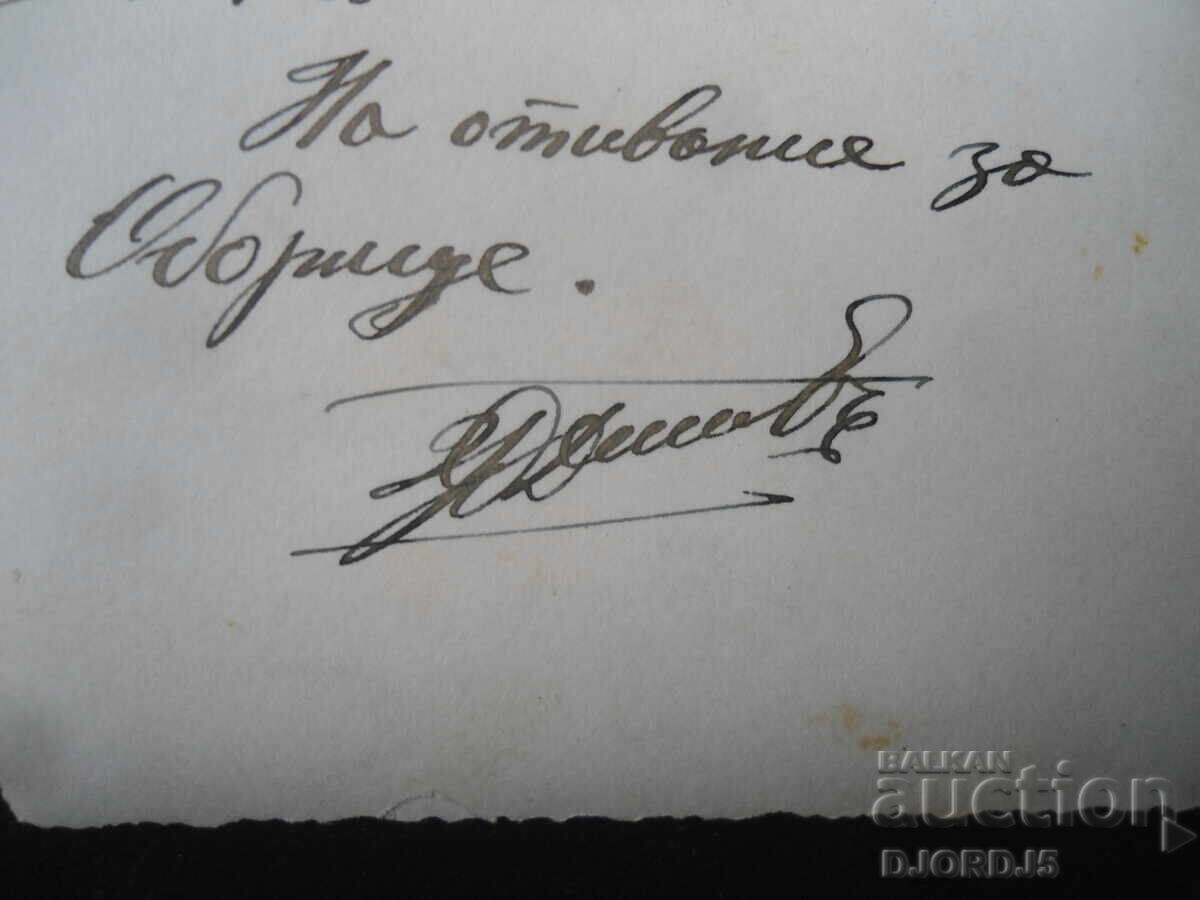 На отивание за
Оборище.
BALKAN
auction
DJORDJ5